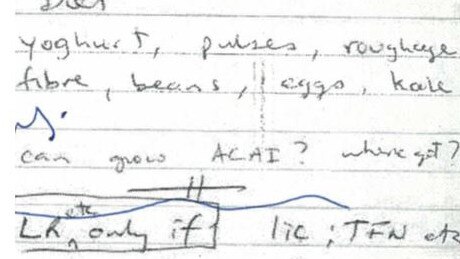 Diet
yoghurt, pulses, roughage
fibre, beans, eggs, kale
can grow ACAI? where got?
LR etc only if lic; TFN etc